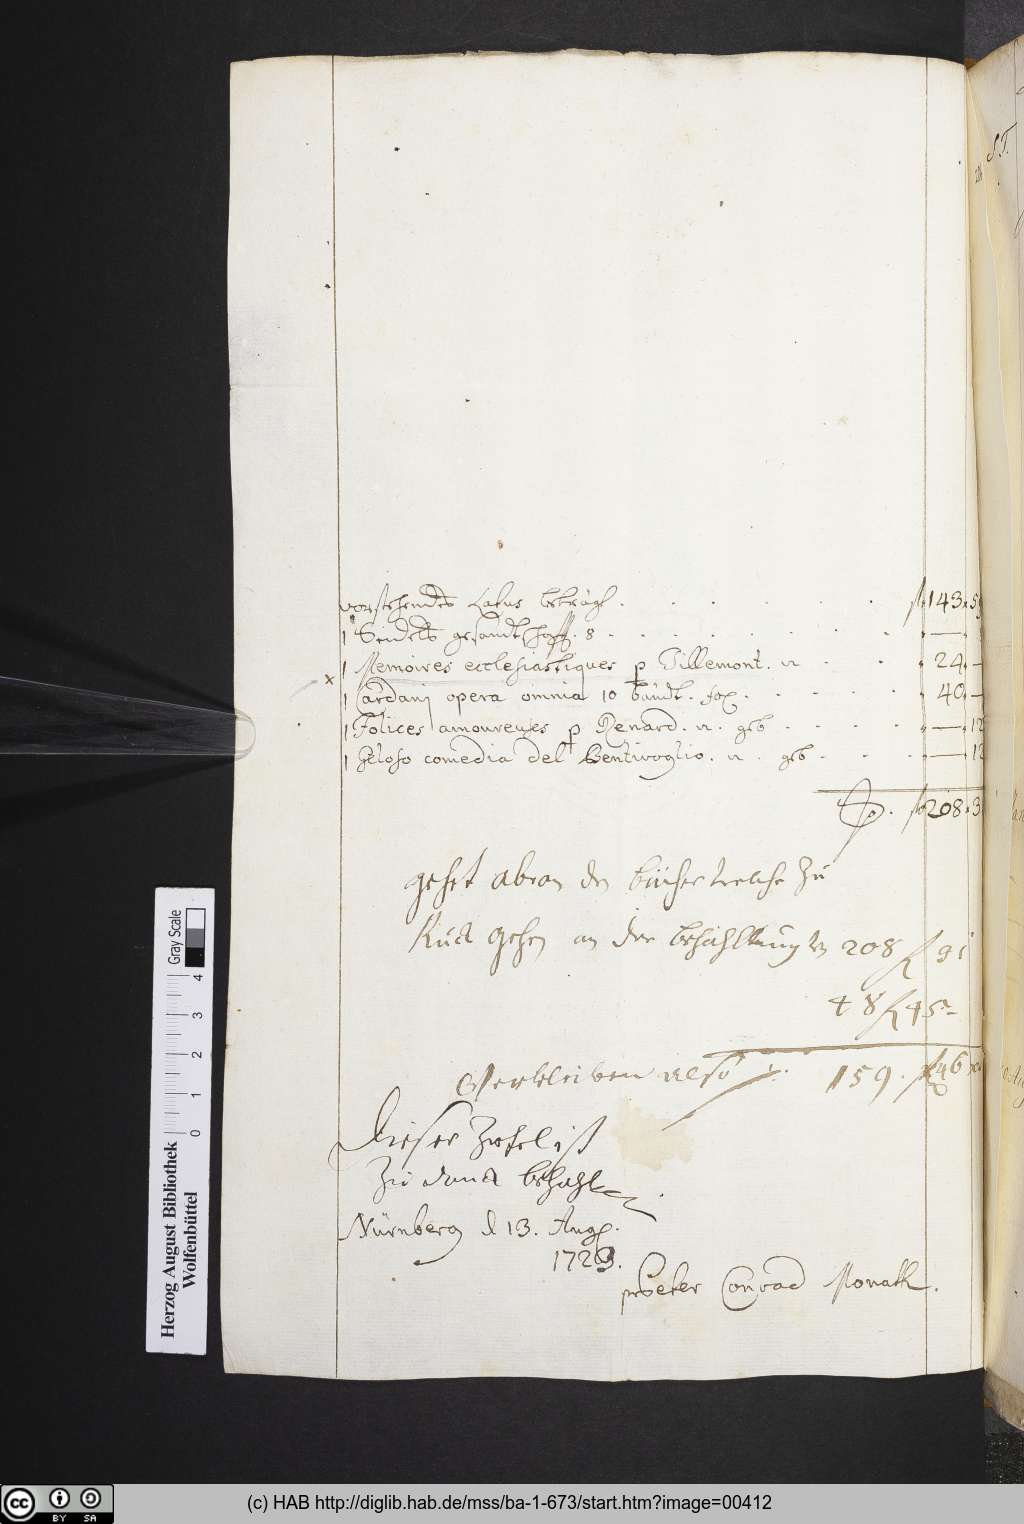 vorstehendes Latus beträgt . . . . . . . f 143. 5
1 Seidels gesandtschafft. 8 . . . . . . . —
1 Memoires ecclesiastiques p Tillemont. 12 . . . 24. —
x
1 Cardanj opera omnia 10 bändt. fol. . . . . . 40. —
1 Folices amoureuses p Renard. 12. geb . . . . . — 12
1 Geloso comedia del Bentivoglio. 12. geb . . . . — 12
f 208. 3
gehet abvon den bücher welche Zu
Ruck gehen an der bezahllung 208 f 31
48 f 45 –
Verbleiben also 159. f 46
Dieser Zetel ist
zu danck bezahlt
Nürnberg d 13. Aug.
1723.
Peter Conrad Monath.
S. T.
Herzog August Bibliothek
Wolfenbüttel
Gray Scale
0 1 2 3 4
cc BY SA
(c) HAB http://diglib.hab.de/mss/ba-1-673/start.htm?image=00412